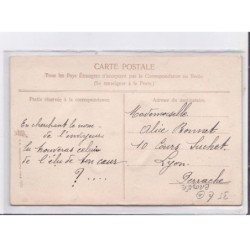 CARTE POSTALE
Tous les Pays Étrangers n'acceptent pas la Correspondance au Recto
(Se renseigner à la Poste)
Partie réservée à la correspondance
Adresse du destinataire
En cherchant le nom
de l'envoyeur
tu trouveras celui
de l'élu de ton cœur
? ....
Mademoiselle
Alice Bonnet
10 Cours Suchet
Lyon
Perrache